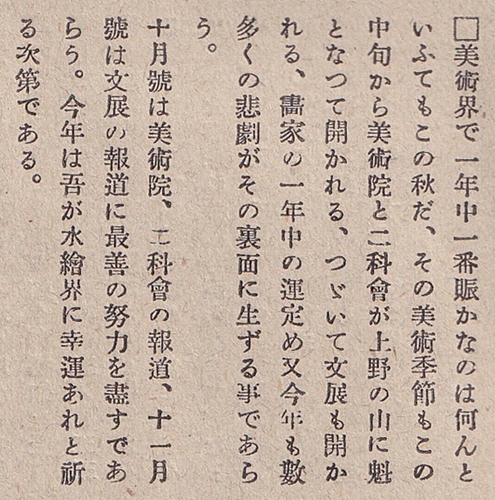 □美術界で一年中一番賑かなのは何んと
いふてもこの秋だ、その美術季節もこの
中旬から美術院と二科會が上野の山に魁
となつて開かれる、つゞいて文展も開か
れる、畵家の一年中の運定め又今年も數
多くの悲劇がその裏面に生ずる事であら
う。
十月號は美術院、二科會の報道、十一月
號は文展の報道に最善の努力を盡すであ
らう。今年は吾が水繪界に幸運あれと祈
る次第である。